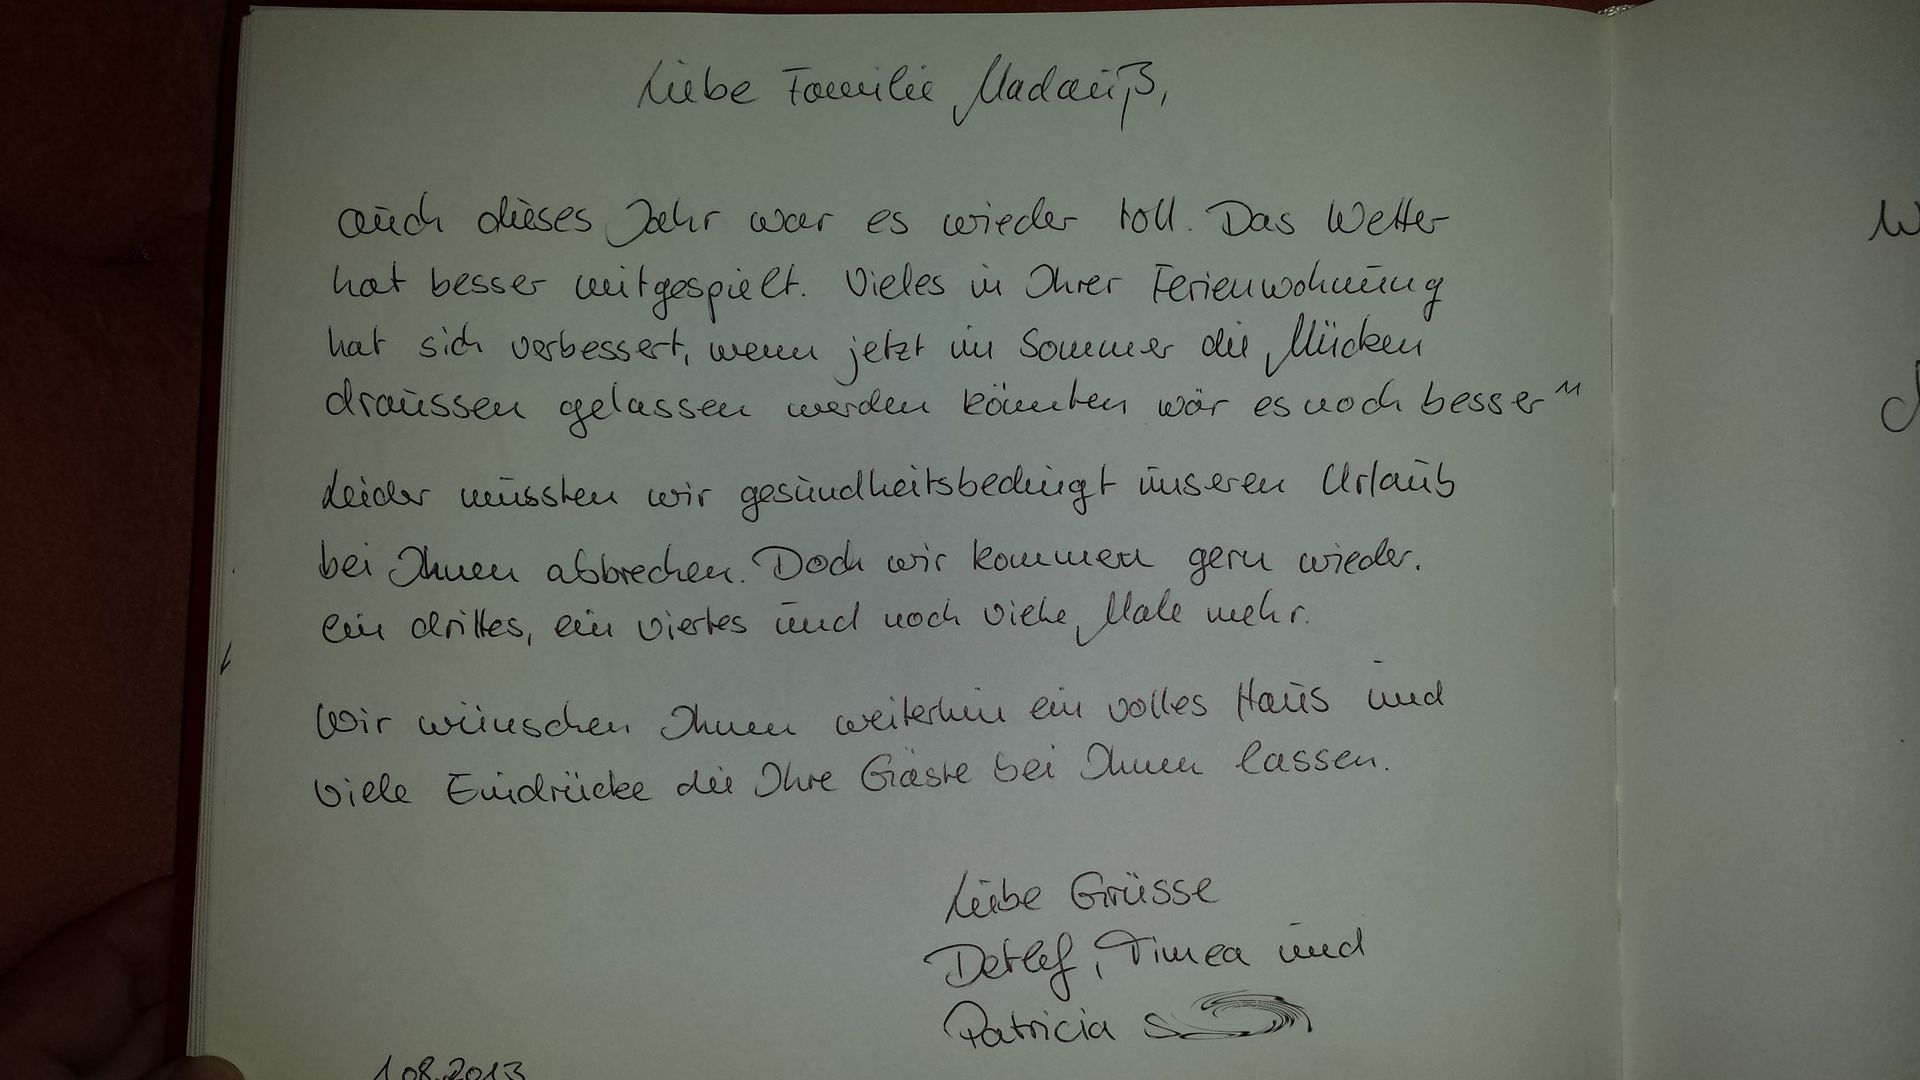 Liebe Familie Madauß,
auch dieses Jahr war es wieder toll. Das Wetter
hat besser mitgespielt. Vieles in Ihrer Ferienwohnung
hat sich verbessert, wenn jetzt im Sommer die Mücken
draussen gelassen werden könnten wär es noch besser ^^
Leider mussten wir gesundheitsbedingt unseren Urlaub
bei Ihnen abbrechen. Doch wir kommen gern wieder.
ein drittes, ein viertes und noch viele Male mehr.
Wir wünschen Ihnen weiterhin ein volles Haus und
viele Eindrücke die Ihre Gäste bei Ihnen lassen.
Liebe Grüsse
Detlef, Timea und
Patricia S
1.08.2013